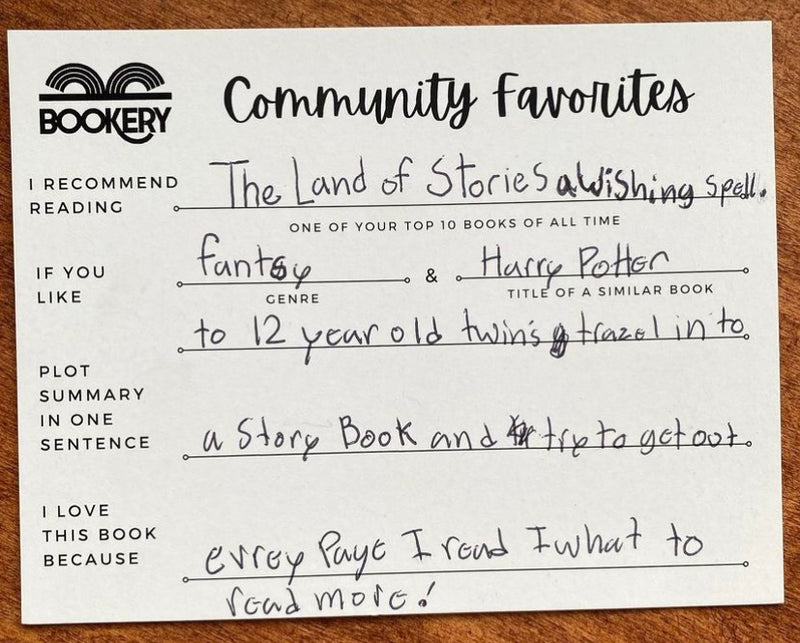 BOOKERY
Community Favorites
I RECOMMEND READING
The Land of Stories a Wishing Spell.
ONE OF YOUR TOP 10 BOOKS OF ALL TIME
IF YOU LIKE
fantsy & Harry Potter
GENRE TITLE OF A SIMILAR BOOK
PLOT SUMMARY IN ONE SENTENCE
to 12 year old twins trazel in to
a Story Book and try to get out.
I LOVE THIS BOOK BECAUSE
evrey Page I read I what to
read more!